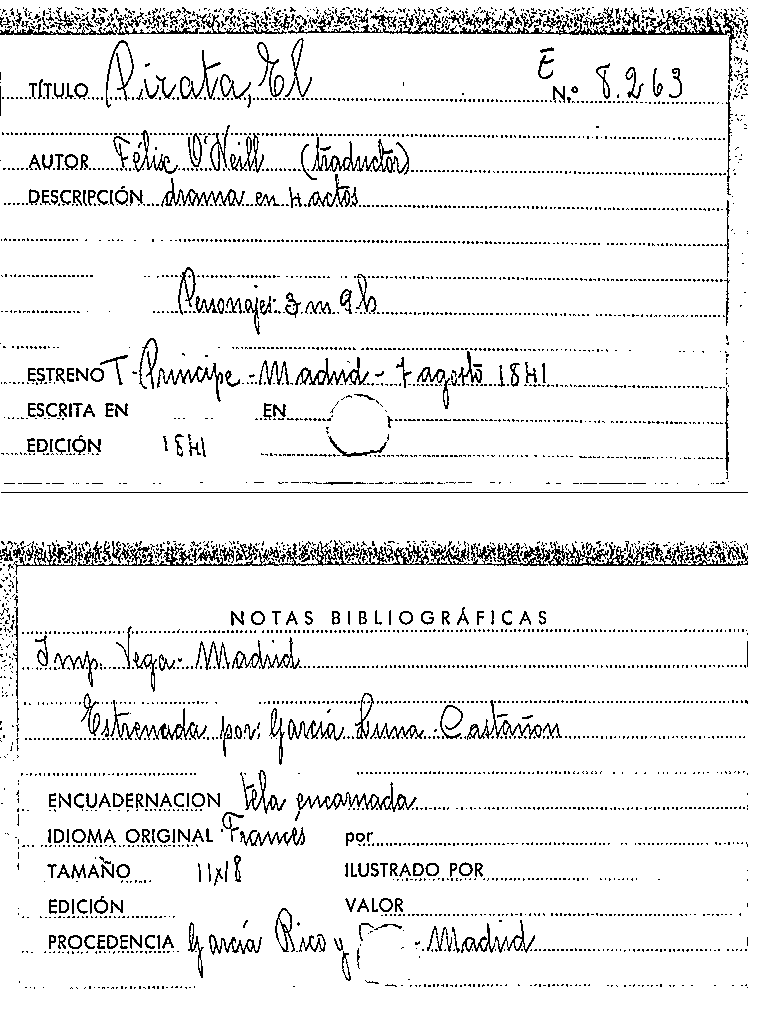 E
TÍTULO Pirata, El N.º 8.263
AUTOR Félix O'Neill (traductor)
DESCRIPCIÓN drama en 4 actos
Personajes: 3 m 9 h
ESTRENO T. Príncipe - Madrid - 7 agosto 1841
ESCRITA EN EN
EDICIÓN 1841
NOTAS BIBLIOGRÁFICAS
Imp. Vega - Madrid
Estrenada por: García Luna - Castañon
ENCUADERNACION tela encarnada
IDIOMA ORIGINAL Francés por
TAMAÑO 11x18 ILUSTRADO POR
EDICIÓN VALOR
PROCEDENCIA García Rico y - Madrid